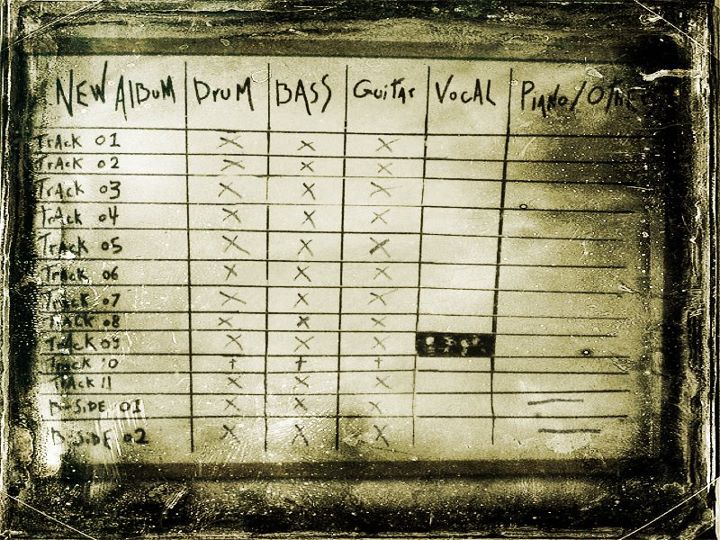 NEW ALBUM DruM BASS Guitar VocAL PiANO/OTHEr
TrAck 01 X X X
TrAck 02 X X X
TrAck 03 X X X
TrAck 04 X X X
TrAck 05 X X X
TrAck 06 X X X
TrAck 07 X X X
TrACK 08 X X X
TrAcK 09 X X X
TrAck 10 + + +
TrAck 11 X X X
B-SiDE 01 X X X
B-SiDE 02 X X X